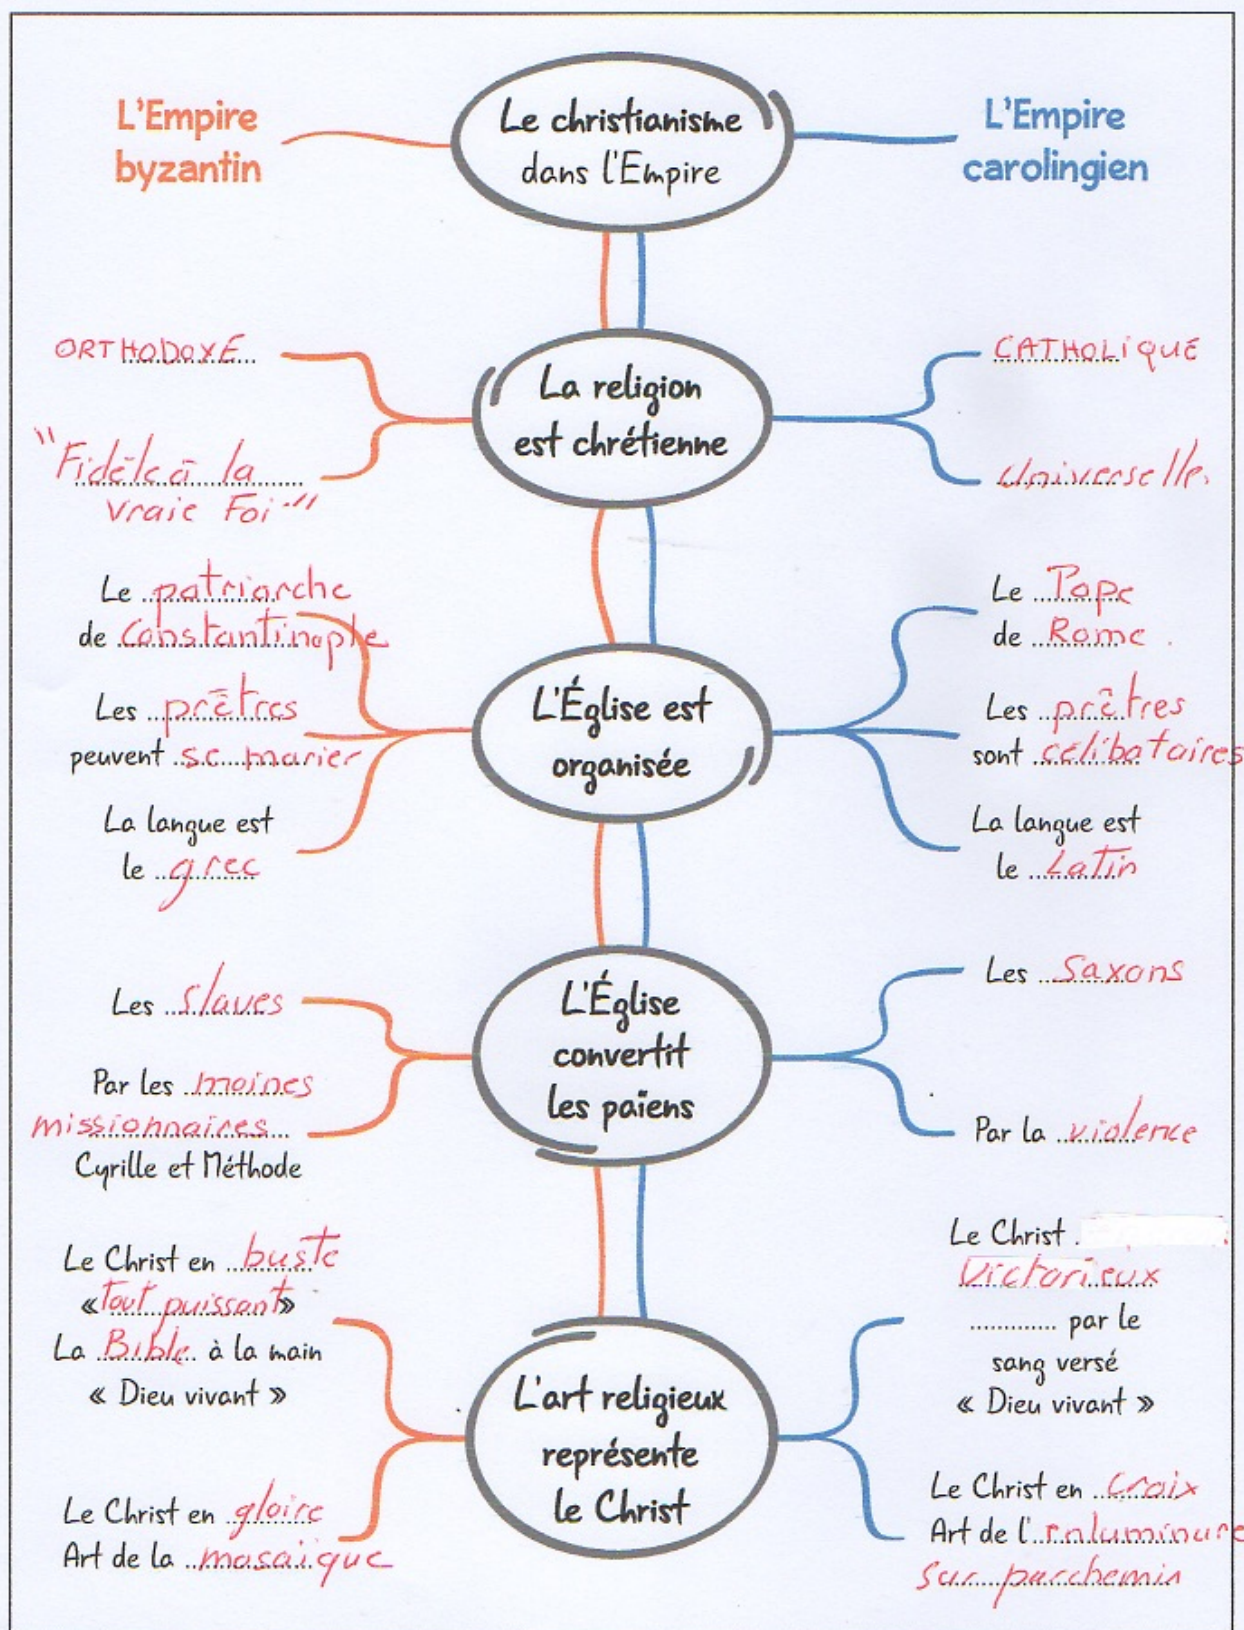 L'Empire
byzantin
Le christianisme
dans l'Empire
L'Empire
carolingien
ORTHODOXE
"Fidèle à la
vraie Foi"
La religion
est chrétienne
CATHOLIQUE
Universelle
Le patriarche
de Constantinople
Les prêtres
peuvent se marier
La langue est
le grec
L'Église est
organisée
Le Pape
de Rome.
Les prêtres
sont célibataires
La langue est
le Latin
Les slaves
Par les moines
missionnaires
Cyrille et Méthode
L'Église
convertit
les païens
Les Saxons
Par la violence
Le Christ en buste
«Tout puissant»
La Bible à la main
« Dieu vivant »
Le Christ en gloire
Art de la mosaïque
L'art religieux
représente
le Christ
Le Christ
Victorieux
............. par le
sang versé
« Dieu vivant »
Le Christ en croix
Art de l'enluminure
sur parchemin